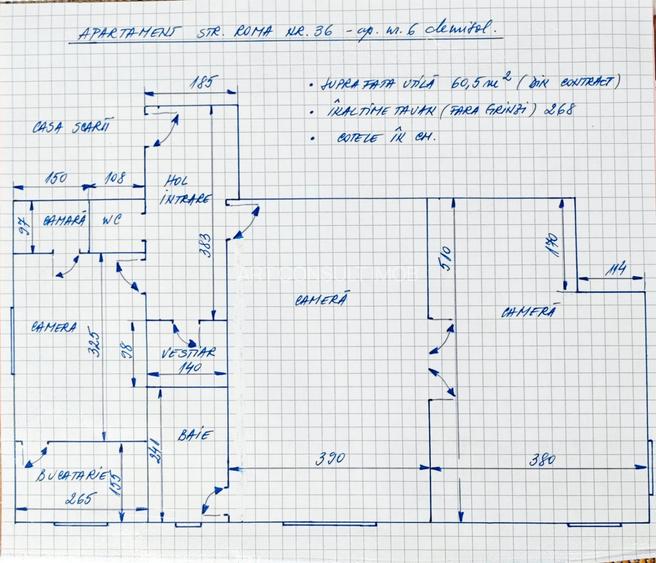 APARTAMENT STR. ROMA NR. 36 - ap. nr. 6 demisol.
• SUPRAFATA UTILĂ 60,5 m² (DIN CONTRACT)
• ÎNALTIME TAVAN (FARA GRINZI) 268
• COTELE ÎN CM.
185
CASA SCARII
150
108
HOL
INTRARE
97
CAMARĂ
WC
383
510
170
114
CAMERĂ
CAMERĂ
CAMERA
325
98
VESTIAR
140
BAIE
241
BUCATARIE
155
265
390
380